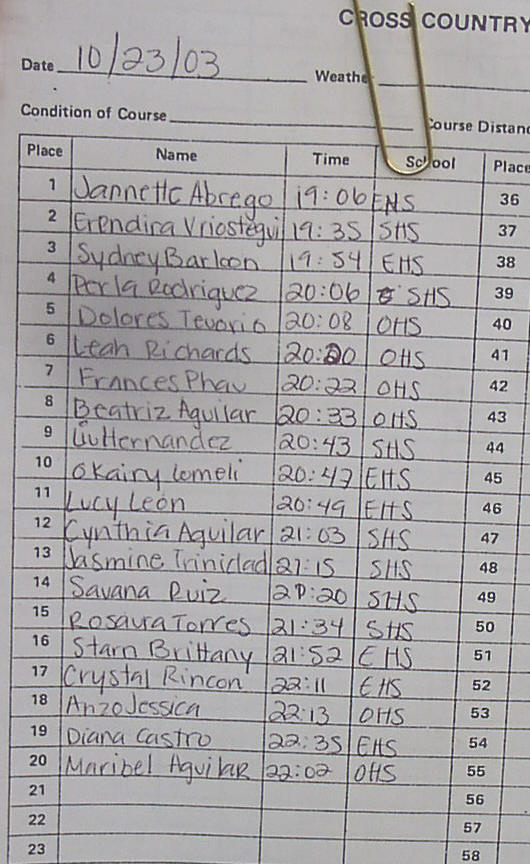 CROSS COUNTRY
Date 10/23/03 Weathe
Condition of Course Course Distanc
Place Name Time School Place
1 Jannette Abrego 19:06 EHS 36
2 Erendira Vriostegui 19:35 SHS 37
3 Sydney Barloon 19:54 EHS 38
4 Perla Rodriguez 20:06 SHS 39
5 Dolores Tevorio 20:08 OHS 40
6 Leah Richards 20:20 OHS 41
7 Frances Phau 20:22 OHS 42
8 Beatriz Aguilar 20:33 OHS 43
9 Liv Hernandez 20:43 SHS 44
10 Okairy Lomeli 20:47 EHS 45
11 Lucy León 20:49 EHS 46
12 Cynthia Aguilar 21:03 SHS 47
13 Jasmine Trinidad 21:15 SHS 48
14 Savana Ruiz 21:20 SHS 49
15 Rosaura Torres 21:34 SHS 50
16 Starn Brittany 21:52 EHS 51
17 Crystal Rincon 22:11 EHS 52
18 Anzo Jessica 22:13 OHS 53
19 Diana Castro 22:35 EHS 54
20 Maribel Aguilar 22:02 OHS 55
21 56
22 57
23 58